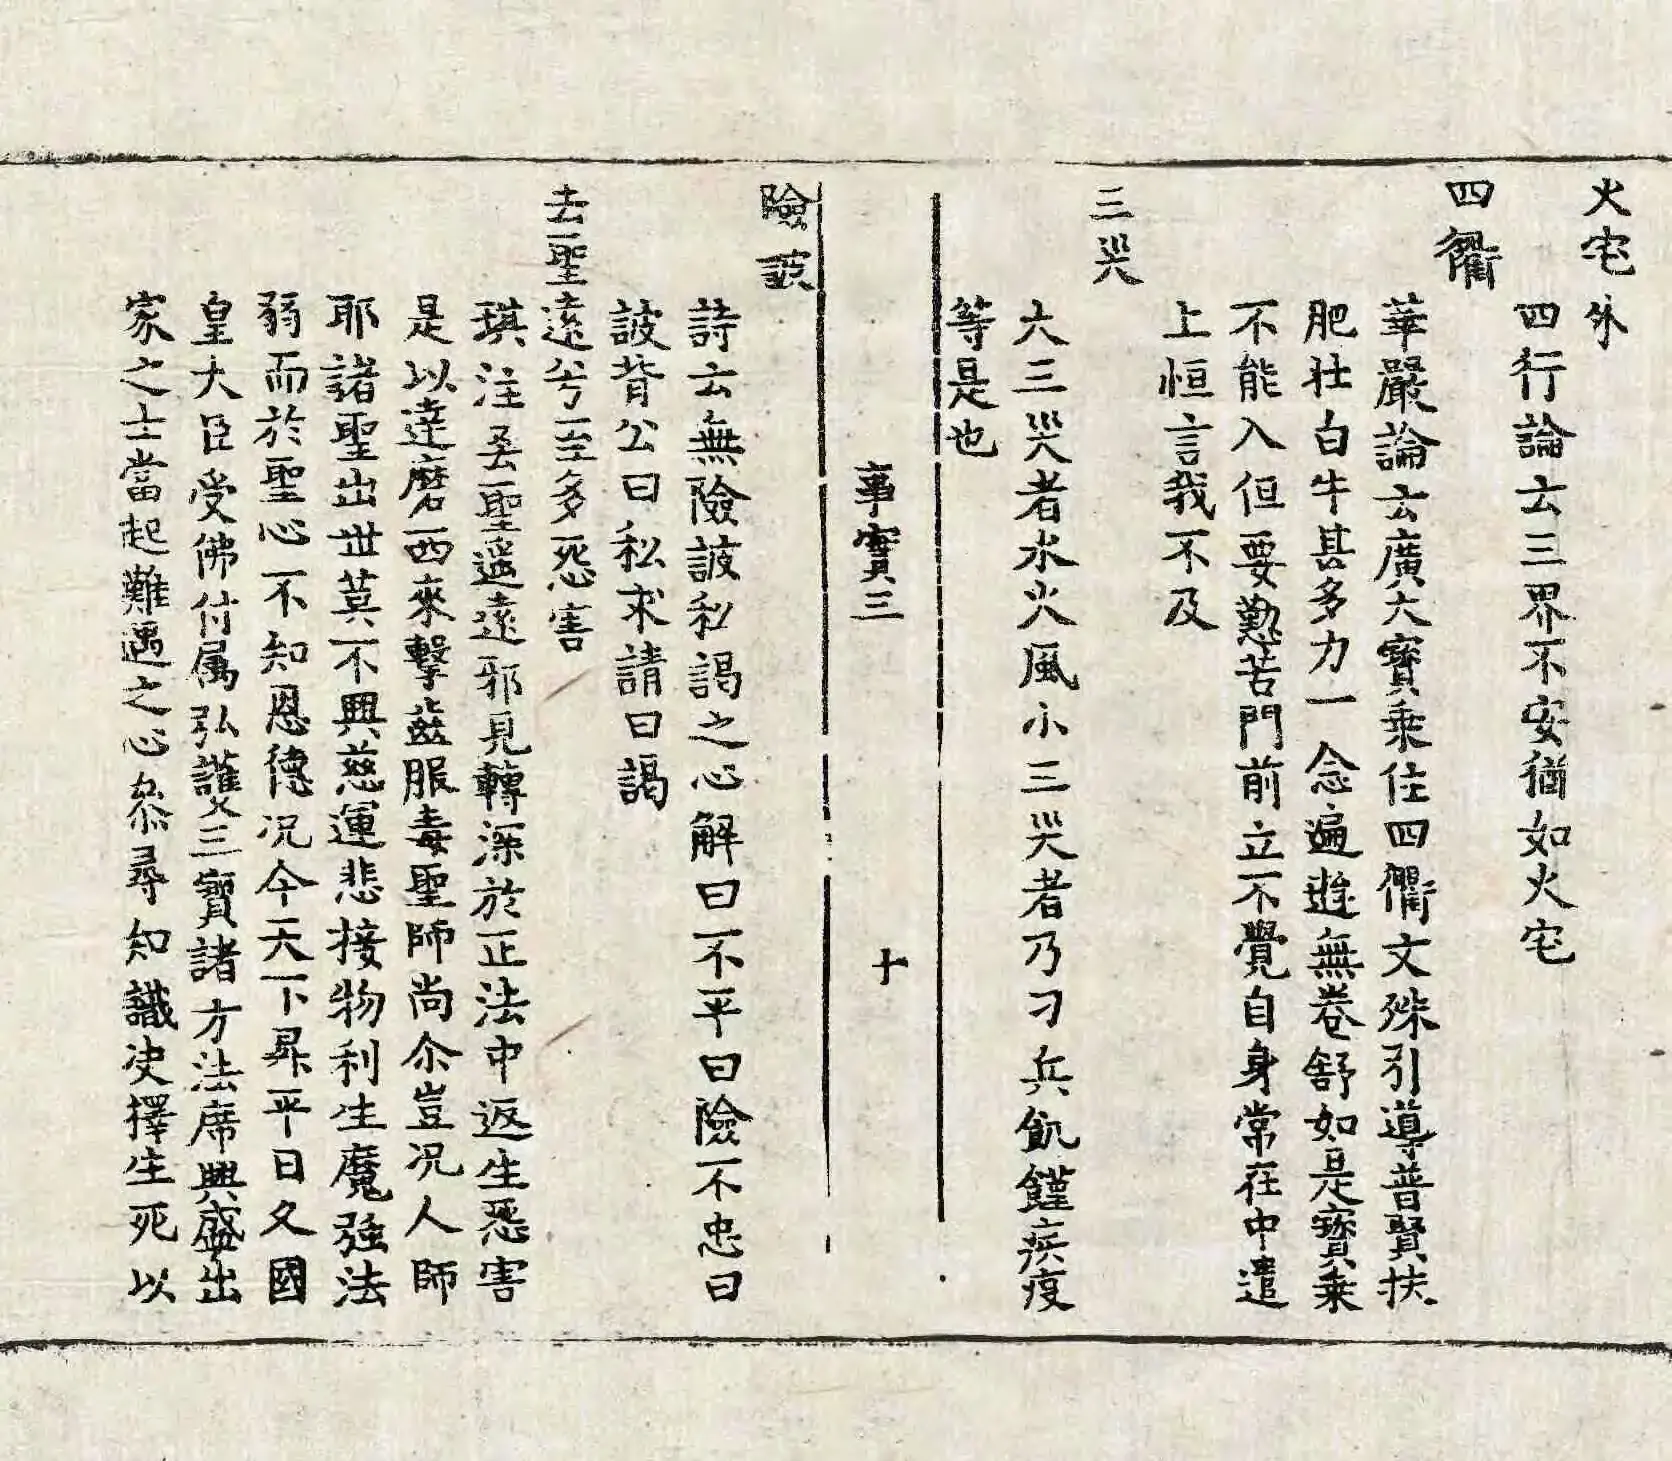 火宅外
四行論云三界不安猶如火宅
四衢
華嚴論云廣大寶乘住四衢文殊引導普賢扶
肥壯白牛甚多力一念遍遊無卷舒如是寶乘
不能入但要懃苦門前立不覺自身常在中遣
上恒言我不及
三災
大三災者水火風小三災者乃刁兵飢饉疾疫
等是也
事實三 十
險詖
詩云無險詖私謁之心解曰不平曰險不忠曰
詖背公曰私求請曰謁
去聖遠兮至多惌害
琪注丟聖遥遠邪見轉深於正法中返生惡害
是以達磨西來擊齒服毒聖師尚尒豈况人師
耶諸聖出世莫不興慈運悲接物利生魔强法
弱而於聖心不知恩德况今天下昇平日久國
皇大臣受佛付属弘護三寶諸方法席興盛出
家之士當起難遇之心叅尋知識决擇生死以